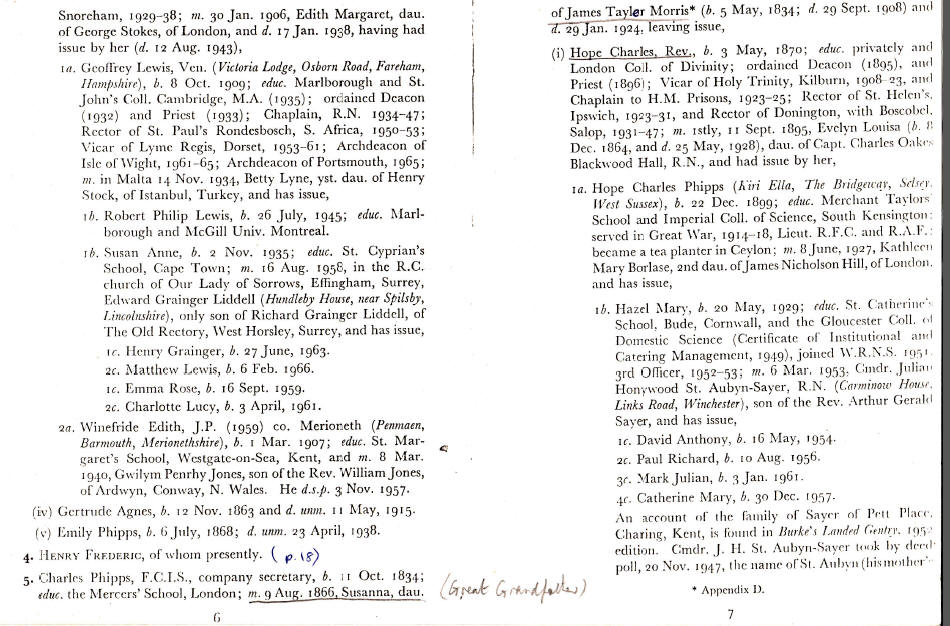 Snoreham, 1929–38; m. 30 Jan. 1906, Edith Margaret, dau.
of George Stokes, of London, and d. 17 Jan. 1938, having had
issue by her (d. 12 Aug. 1943),
1a. Geoffrey Lewis, Ven. (Victoria Lodge, Osborn Road, Fareham,
Hampshire), b. 8 Oct. 1909; educ. Marlborough and St.
John's Coll. Cambridge, M.A. (1935); ordained Deacon
(1932) and Priest (1933); Chaplain, R.N. 1934–47;
Rector of St. Paul's Rondesbosch, S. Africa, 1950–53;
Vicar of Lyme Regis, Dorset, 1953–61; Archdeacon of
Isle of Wight, 1961–65; Archdeacon of Portsmouth, 1965;
m. in Malta 14 Nov. 1934, Betty Lyne, yst. dau. of Henry
Stock, of Istanbul, Turkey, and has issue,
1b. Robert Philip Lewis, b. 26 July, 1945; educ. Marl-
borough and McGill Univ. Montreal.
1b. Susan Anne, b. 2 Nov. 1935; educ. St. Cyprian's
School, Cape Town; m. 16 Aug. 1958, in the R.C.
church of Our Lady of Sorrows, Effingham, Surrey,
Edward Grainger Liddell (Hundleby House, near Spilsby,
Lincolnshire), only son of Richard Grainger Liddell, of
The Old Rectory, West Horsley, Surrey, and has issue,
1c. Henry Grainger, b. 27 June, 1963.
2c. Matthew Lewis, b. 6 Feb. 1966.
1c. Emma Rose, b. 16 Sept. 1959.
2c. Charlotte Lucy, b. 3 April, 1961.
2a. Winefride Edith, J.P. (1959) co. Merioneth (Penmaen,
Barmouth, Merionethshire), b. 1 Mar. 1907; educ. St. Mar-
garet's School, Westgate-on-Sea, Kent, and m. 8 Mar.
1940, Gwilym Penrhy Jones, son of the Rev. William Jones,
of Ardwyn, Conway, N. Wales. He d.s.p. 3 Nov. 1957.
(iv) Gertrude Agnes, b. 12 Nov. 1863 and d. unm. 11 May, 1915.
(v) Emily Phipps, b. 6 July, 1868; d. unm. 23 April, 1938.
4. HENRY FREDERIC, of whom presently. (p.18)
5. Charles Phipps, F.C.I.S., company secretary, b. 11 Oct. 1834;
educ. the Mercers' School, London; m. 9 Aug. 1866, Susanna, dau.
(Great Grandfather)
6
of James Tayler Morris* (b. 5 May, 1834; d. 29 Sept. 1908) and
d. 29 Jan. 1924, leaving issue,
(i) Hope Charles, Rev., b. 3 May, 1870; educ. privately and
London Coll. of Divinity; ordained Deacon (1895), and
Priest (1896); Vicar of Holy Trinity, Kilburn, 1908–23, and
Chaplain to H.M. Prisons, 1923–25; Rector of St. Helen's,
Ipswich, 1923–31, and Rector of Donington, with Boscobel,
Salop, 1931–47; m. 1stly, 11 Sept. 1895, Evelyn Louisa (b. 8
Dec. 1864, and d. 25 May, 1928), dau. of Capt. Charles Oakes
Blackwood Hall, R.N., and had issue by her,
1a. Hope Charles Phipps (Kiri Ella, The Bridgeway, Selsey,
West Sussex), b. 22 Dec. 1899; educ. Merchant Taylors'
School and Imperial Coll. of Science, South Kensington;
served in Great War, 1914–18, Lieut. R.F.C. and R.A.F.;
became a tea planter in Ceylon; m. 8 June, 1927, Kathleen
Mary Borlase, 2nd dau. of James Nicholson Hill, of London,
and has issue,
1b. Hazel Mary, b. 20 May, 1929; educ. St. Catherine's
School, Bude, Cornwall, and the Gloucester Coll. of
Domestic Science (Certificate of Institutional and
Catering Management, 1949), joined W.R.N.S. 1951,
3rd Officer, 1952–53; m. 6 Mar. 1953, Cmdr. Julian
Honywood St. Aubyn-Sayer, R.N. (Carminow House,
Links Road, Winchester), son of the Rev. Arthur Gerald
Sayer, and has issue,
1c. David Anthony, b. 16 May, 1954.
2c. Paul Richard, b. 10 Aug. 1956.
3c. Mark Julian, b. 3 Jan. 1961.
4c. Catherine Mary, b. 30 Dec. 1957.
An account of the family of Sayer of Pett Place,
Charing, Kent, is found in Burke's Landed Gentry, 1952
edition. Cmdr. J. H. St. Aubyn-Sayer took by deed
poll, 20 Nov. 1947, the name of St. Aubyn (his mother's
* Appendix D.
7